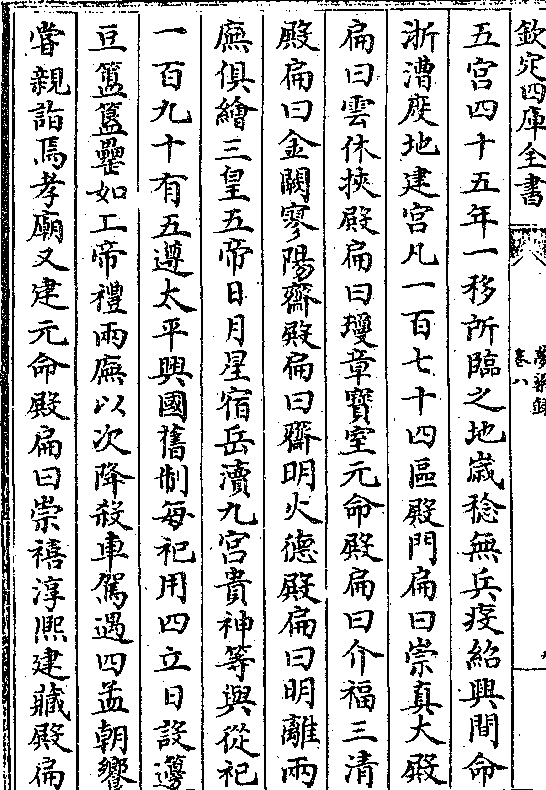 欽定四庫全書
夢粱錄
卷八
五宫四十五年一移所臨之地嵗稔無兵疫紹興間命
浙漕度地建宫凡一百七十四區殿門扁曰崇真大殿
扁曰雲休挾殿扁曰瓊章寳室元命殿扁曰介福三清
殿扁曰金闕寥陽齋殿扁曰齋明火德殿扁曰明離兩
廡俱繪三皇五帝日月星宿岳瀆九宫貴神等與從祀
一百九十有五遵太平興國舊制每祀用四立日設籩
豆簠簋罍如上帝禮兩廡以次降殺車駕遇四孟朝饗
嘗親詣焉孝廟又建元命殿扁曰崇禧淳熈建藏殿扁